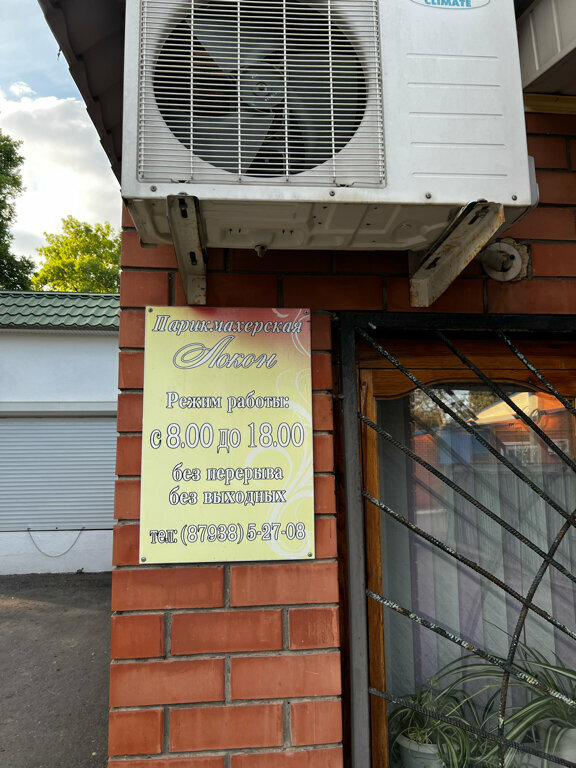 CLIMATE
Парикмахерская
Локон
Режим работы:
с 8.00 до 18.00
без перерыва
без выходных
тел: (87938) 5-27-08